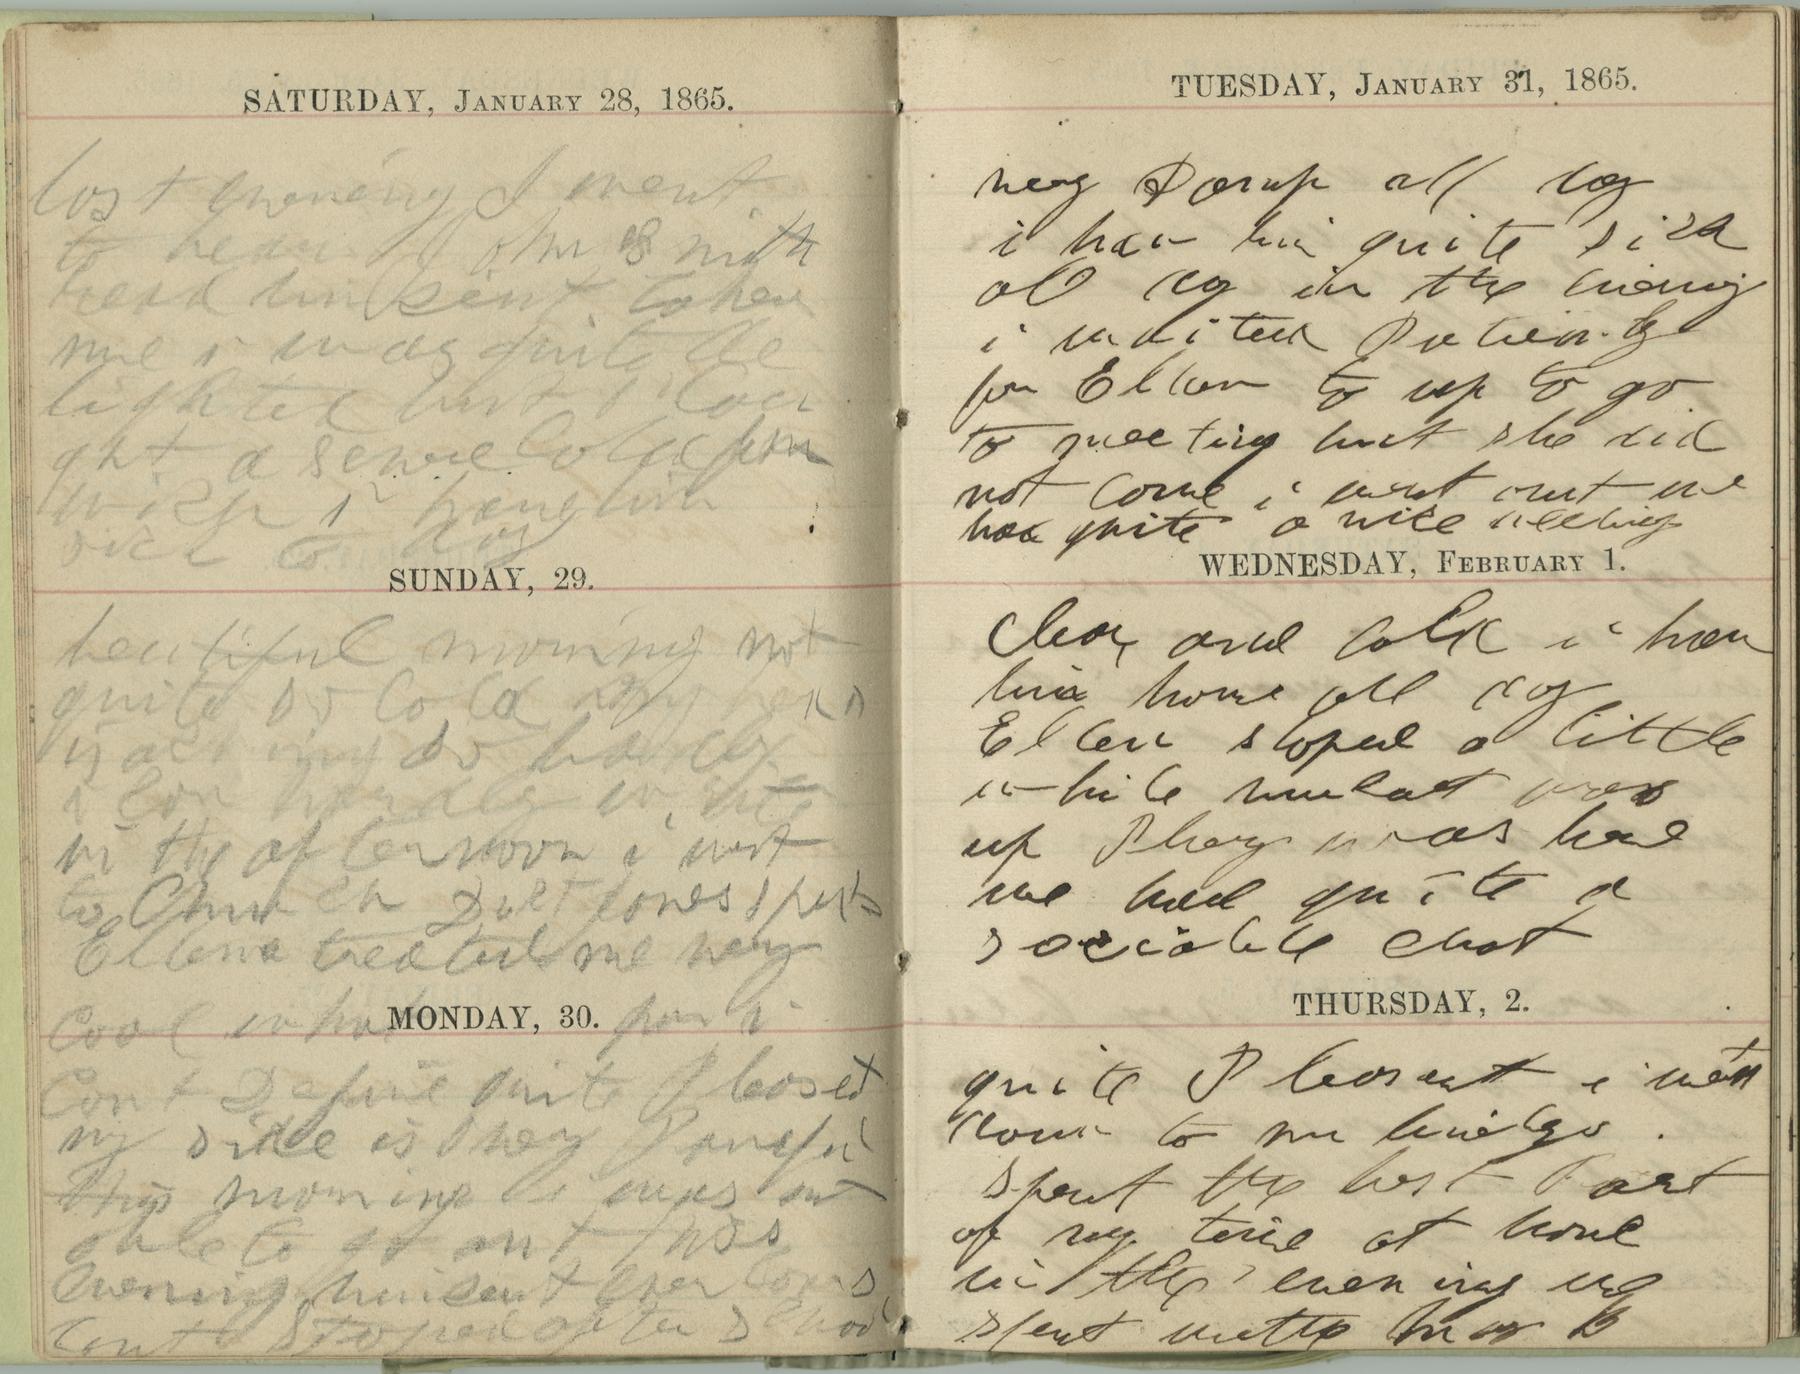 SATURDAY, JANUARY 28, 1865.
last evening I went
to hear John B Smith
read vincent to hear
me i was quite de
lighted but I cau
ght a severe cold from
wich I have bin
sick to day
SUNDAY, 29.
beautiful morning not
quite so cold my head
is aching so badly
i can hardly write
in the afternoon i went
to Church
Ellena treated me very
cool what for i
MONDAY, 30.
cont Define quite Pleaset
my side is very Painful
this morning i was not
able to go out this
evening vincent
stoped after school
TUESDAY, JANUARY 31, 1865.
very Damp all day
i have bin quite sick
all day in the evening
i waited Patiently
for Ellen to up to go
to meeting but she did
not come i went out we
had quite a nice meeting
WEDNESDAY, FEBRUARY 1.
Clear and cold i have
bin home all day
Ellen stoped a little
while was
up Mary was here
we had quite a
sociable chat
THURSDAY, 2.
quite Pleasent i went
down to
spent the last Part
of my time at home
in the evening we
spent